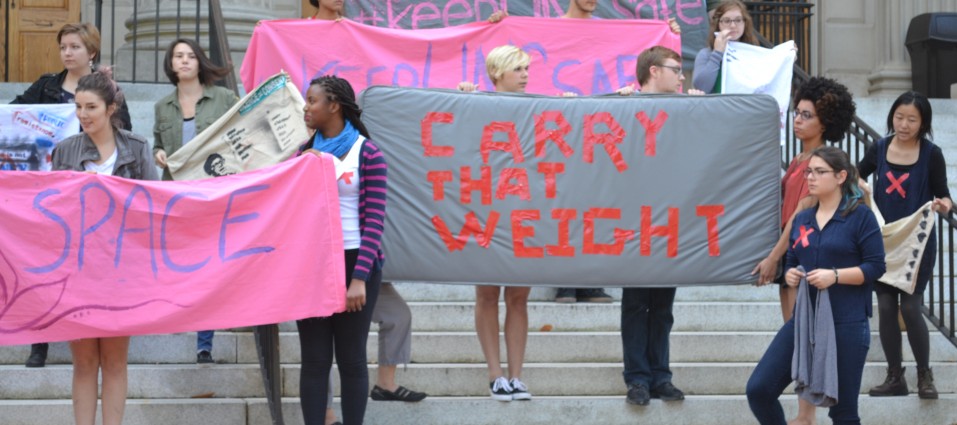 #keepUNCsafe
KEEP UNC SAFE
SPACE
CARRY
THAT
WEIGHT